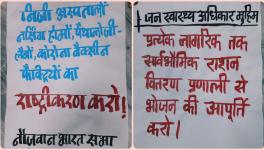 निजी अस्पतालों
नर्सिंग होमों, पैथालोजी-
लैबों, कोरोना वैक्सीन
फैक्ट्रियों का
राष्ट्रीकरण करो!
नौजवान भारत सभा
जन स्वास्थ्य अधिकार मुहिम
प्रत्येक नागरिक तक
सर्वभौमिक राशन
वितरण प्रणाली से
भोजन की आपूर्ति
करो।